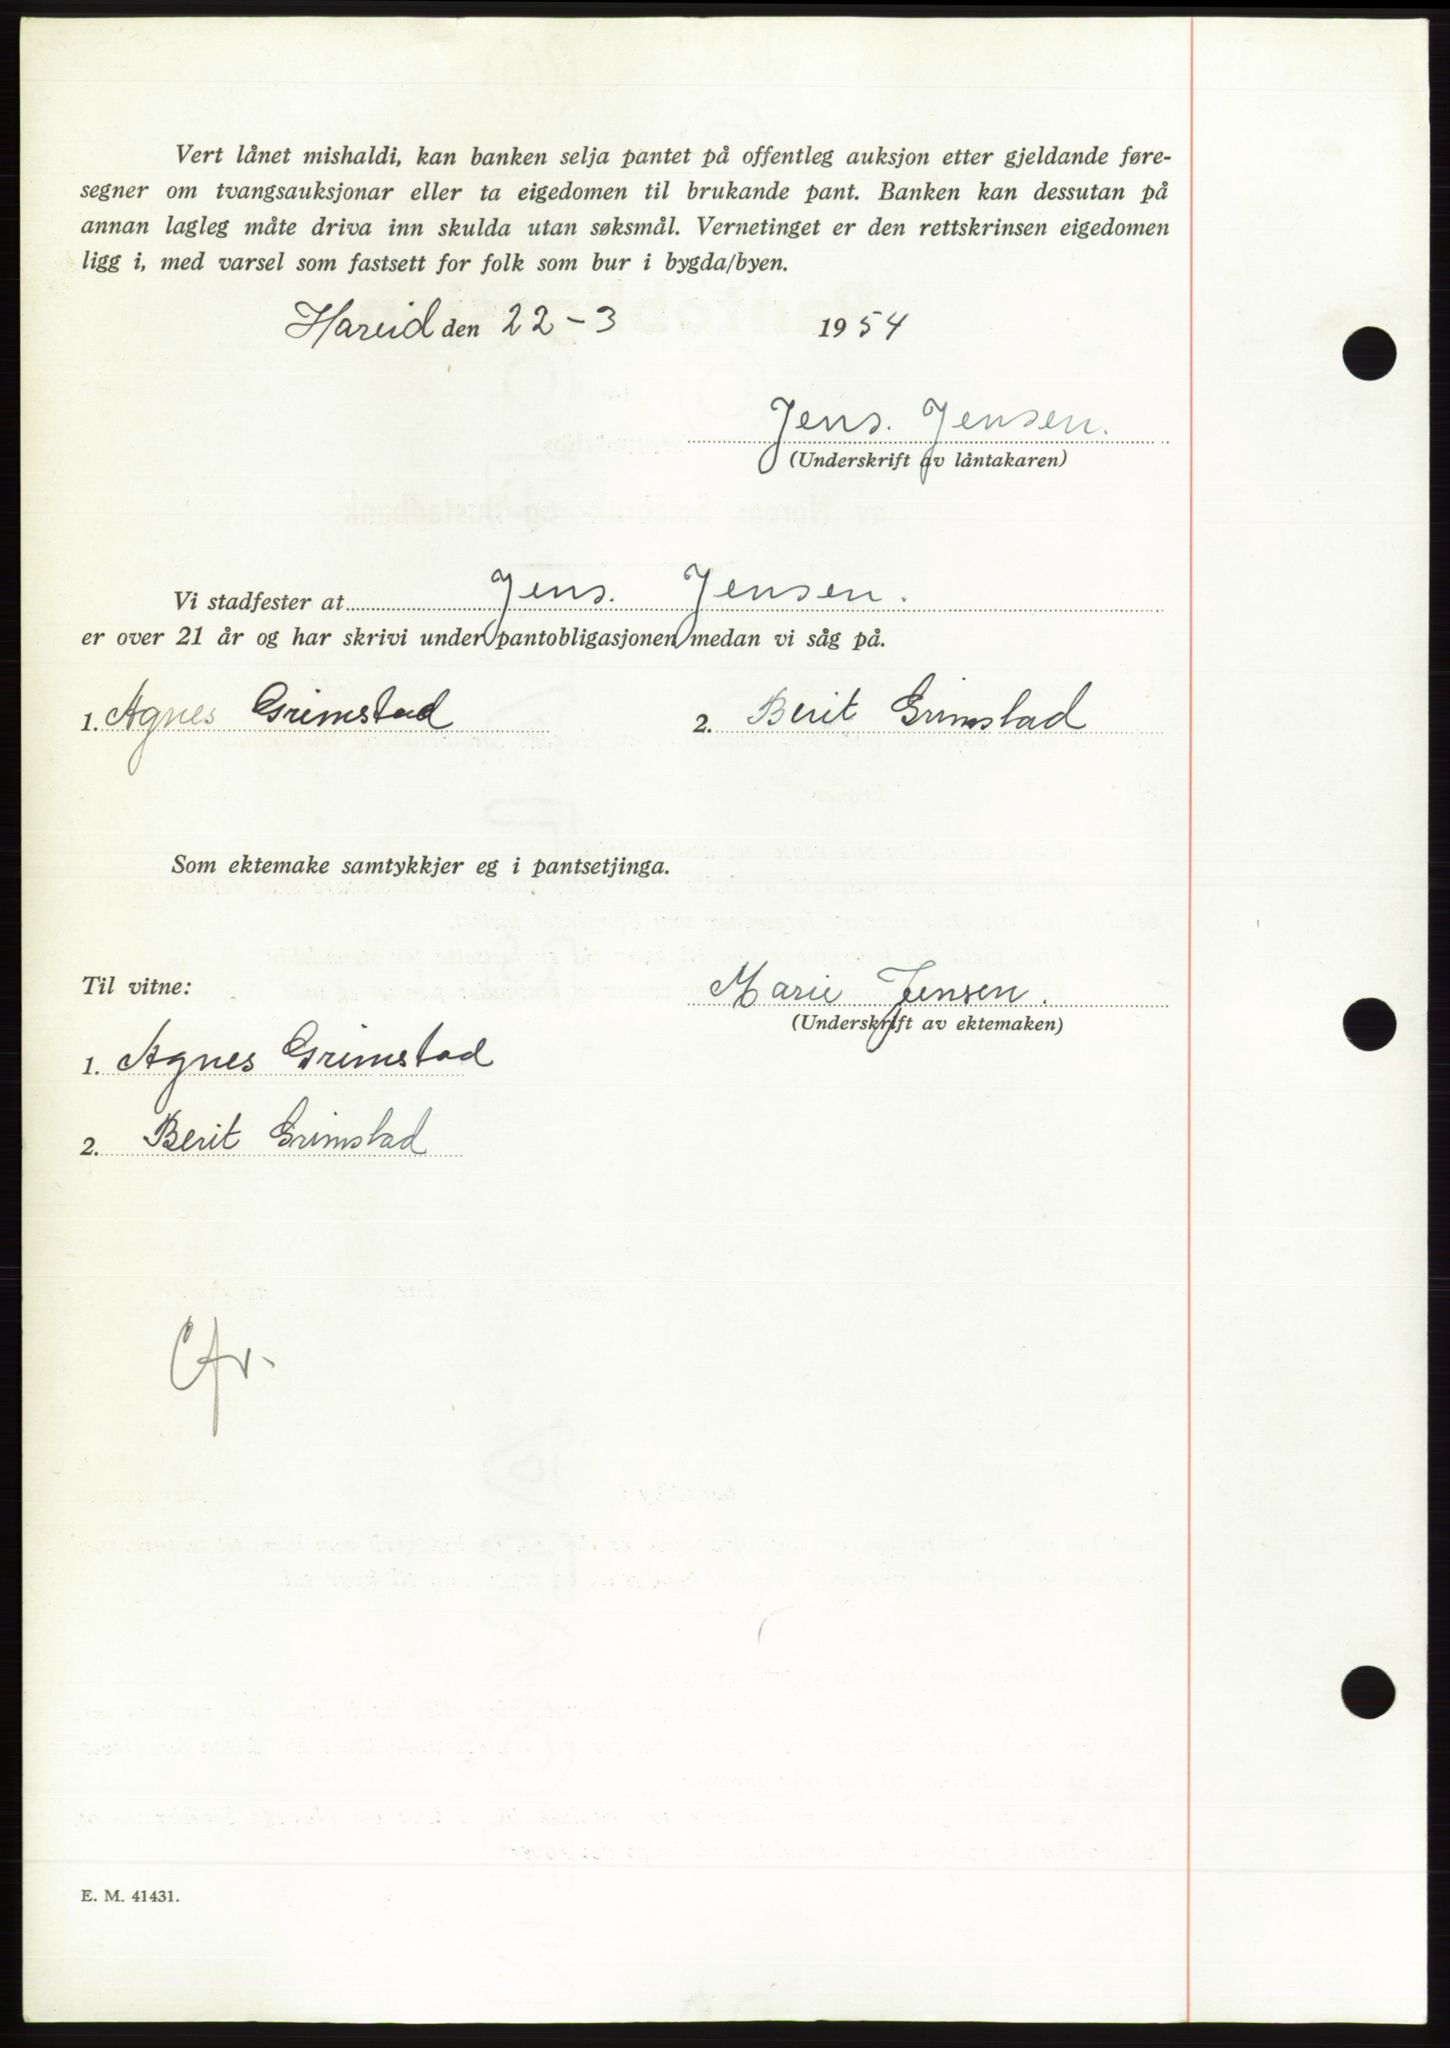 Vert lånet mishaldi, kan banken selja pantet på offentleg auksjon etter gjeldande føre-
segner om tvangsauksjonar eller ta eigedomen til brukande pant. Banken kan dessutan på
annan lagleg måte driva inn skulda utan søksmål. Vernetinget er den rettskrinsen eigedomen
ligg i, med varsel som fastsett for folk som bur i bygda/byen.
Hareid den 22-3 1954
Jens. Jensen.
(Underskrift av låntakaren)
Vi stadfester at Jens. Jensen.
er over 21 år og har skrivi under pantobligasjonen medan vi såg på.
1. Agnes Grimstad 2. Berit Grimstad
Som ektemake samtykkjer eg i pantsetjinga.
Til vitne:
Marie Jensen.
(Underskrift av ektemaken)
1. Agnes Grimstad
2. Berit Grimstad
E. M. 41431.